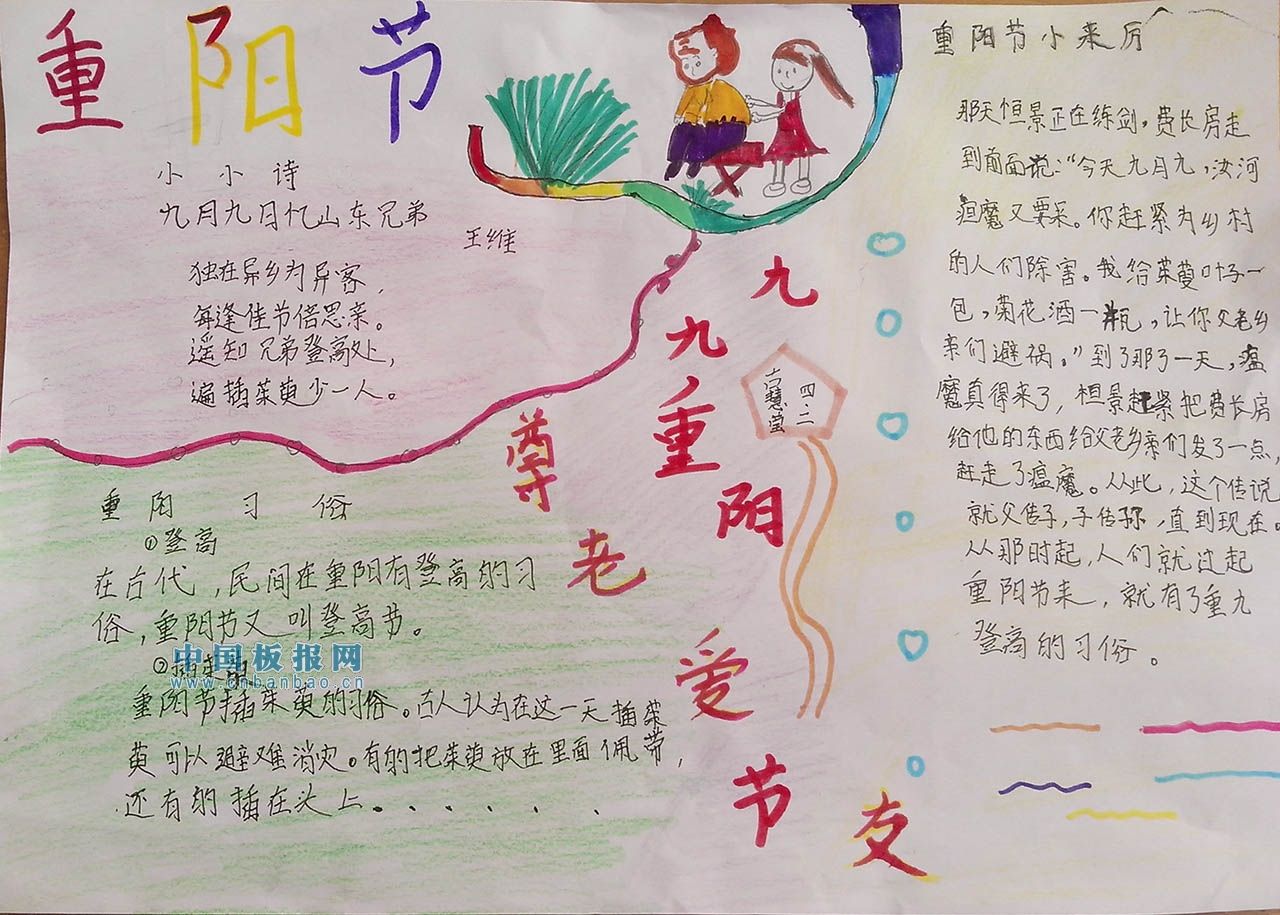 重阳节
小小诗
九月九日忆山东兄弟
王维
独在异乡为异客,
每逢佳节倍思亲。
遥知兄弟登高处,
遍插茱萸少一人。
重阳习俗
①登高
在古代,民间在重阳有登高的习
俗,重阳节又叫登高节。
②插茱萸
中国板报网
www.cnbanbao.cn
重阳节插茱萸的习俗。古人认为在这一天插茱
萸可以避难消灾。有的把茱萸放在里面佩带,
还有的插在头上。. . . . . .
九九重阳节
尊老爱友
四.二
重阳节小来历
那天恒景正在练剑,费长房走
到前面说:“今天九月九,汝河
瘟魔又要来。你赶紧为乡村
的人们除害。我给茱萸叶子一
包,菊花酒一瓶,让你父老乡
亲们避祸。”到了那了一天,瘟
魔真得来了,桓景赶紧把费长房
给他的东西给父老乡亲们发了一点,
赶走了瘟魔。从此,这个传说
就父传子,子传孙,直到现在。
从那时起,人们就过起
重阳节来,就有了重九
登高的习俗。